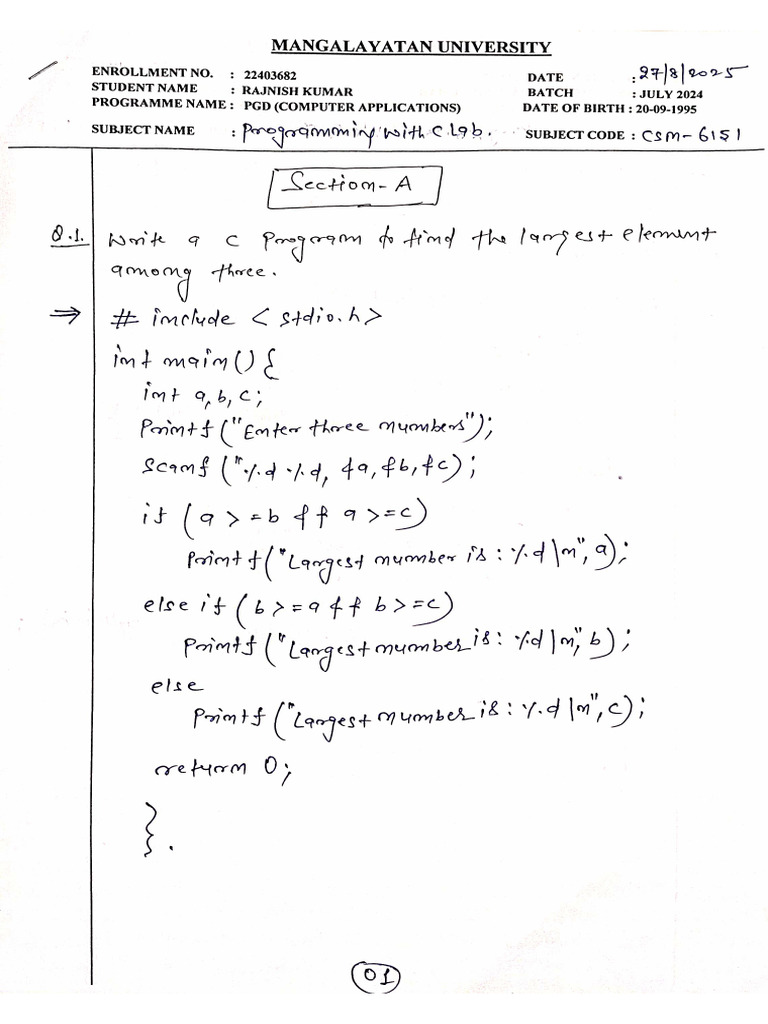 MANGALAYATAN UNIVERSITY
ENROLLMENT NO. : 22403682 DATE : 27/8/2025
STUDENT NAME : RAJNISH KUMAR BATCH : JULY 2024
PROGRAMME NAME : PGD (COMPUTER APPLICATIONS) DATE OF BIRTH : 20-09-1995
SUBJECT NAME : Programming with C Lab. SUBJECT CODE : CSM-6151
Section-A
Q.1. Write a C program to find the largest element
among three.
⇒ # include < stdio.h>
int main() {
int a, b, c;
Printf ("Enter three numbers");
Scanf ("%d %d, &a, &b, &c);
if (a >= b && a >= c)
Printf ("Largest number is : %d \n", a);
else if (b >= a && b >= c)
Printf ("Largest number is : %d \n", b);
else
Printf ("Largest number is : %d \n", c);
return 0;
}.
01